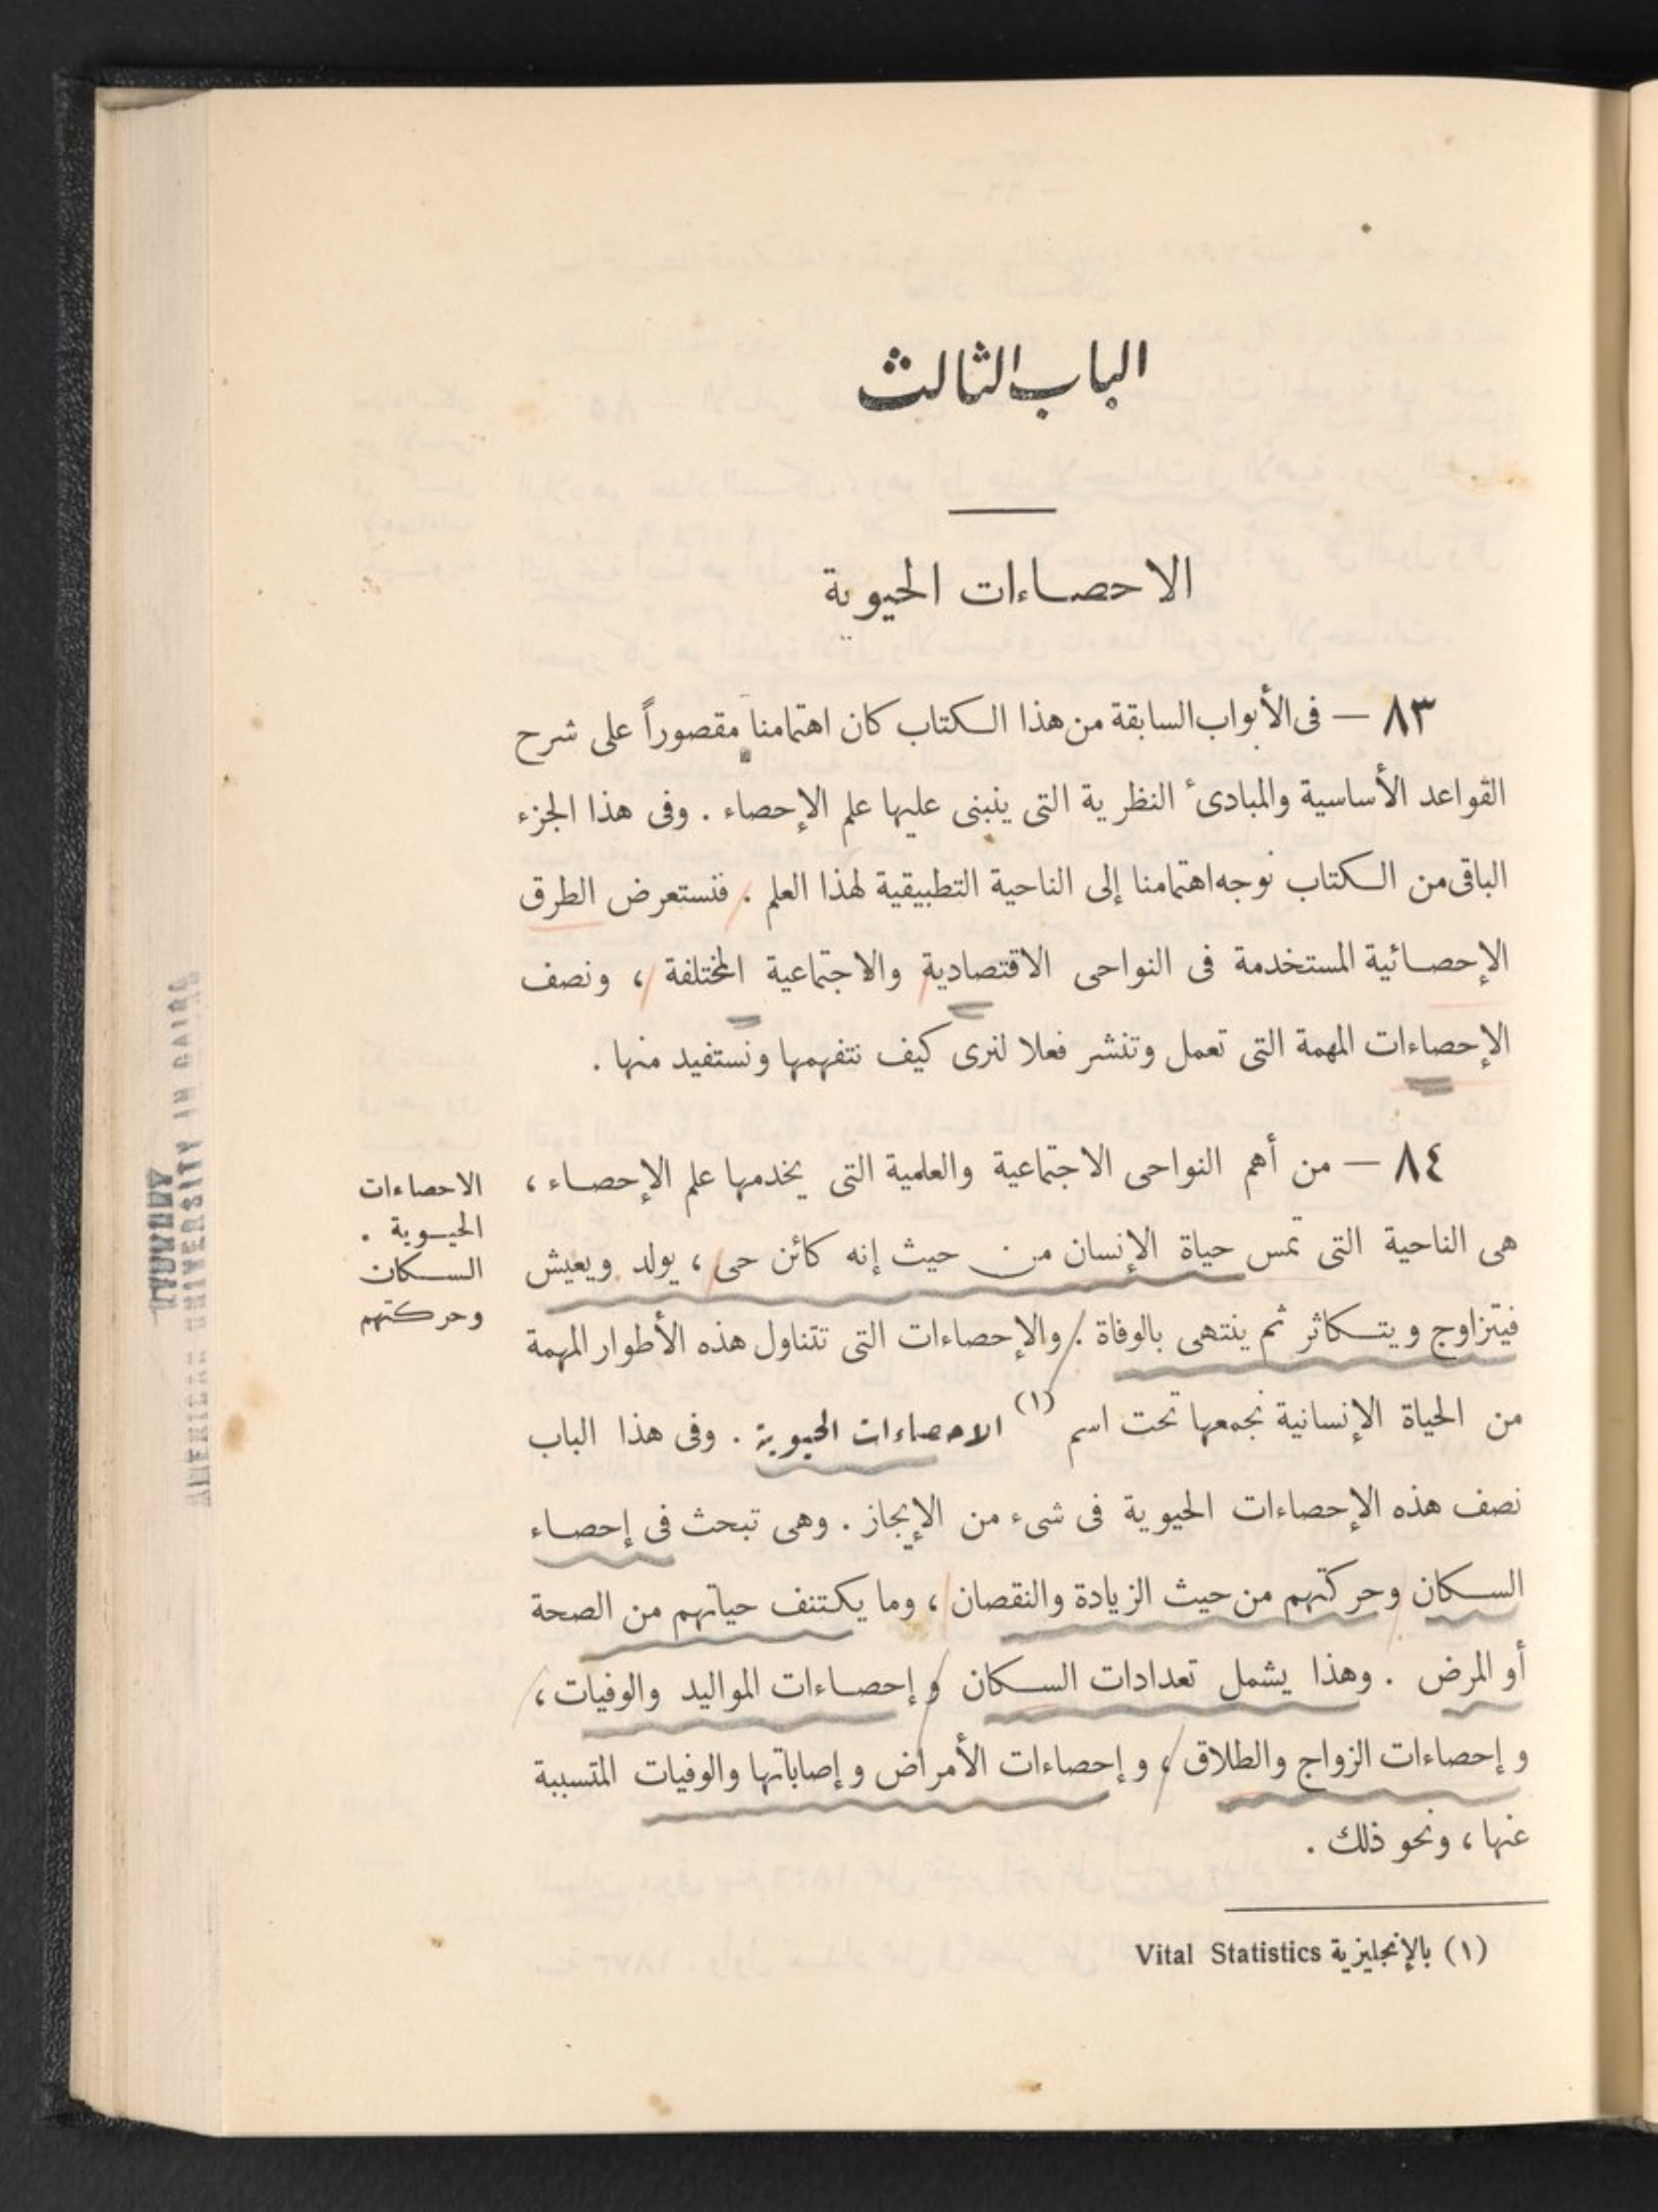 الباب الثالث
الاحصاءات الحيوية
٨٣ — فى الأبواب السابقة من هذا الكتاب كان اهتمامنا مقصوراً على شرح
القواعد الأساسية والمبادئ النظرية التى ينبنى عليها علم الإحصاء . وفى هذا الجزء
الباقى من الكتاب نوجه اهتمامنا إلى الناحية التطبيقية لهذا العلم . فنستعرض الطرق
الإحصائية المستخدمة فى النواحى الاقتصادية والاجتماعية المختلفة ، ونصف
الإحصاءات المهمة التى تعمل وتنشر فعلا لنرى كيف نتفهمها ونستفيد منها .
٨٤ — من أهم النواحى الاجتماعية والعلمية التى يخدمها علم الإحصاء ،
هى الناحية التى تمس حياة الإنسان من حيث إنه كائن حى ، يولد ويعيش
فيتزاوج ويتكاثر ثم ينتهى بالوفاة . والإحصاءات التى تتناول هذه الأطوار المهمة
من الحياة الإنسانية نجمعها تحت اسم (١) الاحصاءات الحيوية . وفى هذا الباب
نصف هذه الإحصاءات الحيوية فى شىء من الإيجاز . وهى تبحث فى إحصاء
السكان وحركتهم من حيث الزيادة والنقصان ، وما يكتنف حياتهم من الصحة
أو المرض . وهذا يشمل تعدادات السكان وإحصاءات المواليد والوفيات ،
وإحصاءات الزواج والطلاق ، وإحصاءات الأمراض وإصاباتها والوفيات المتسببة
عنها ، ونحو ذلك .
الاحصاءات
الحيوية .
السكان
وحركتهم
(١) بالإنجليزية Vital Statistics
AMERICAN UNIVERSITY IN CAIRO
LIBRARY